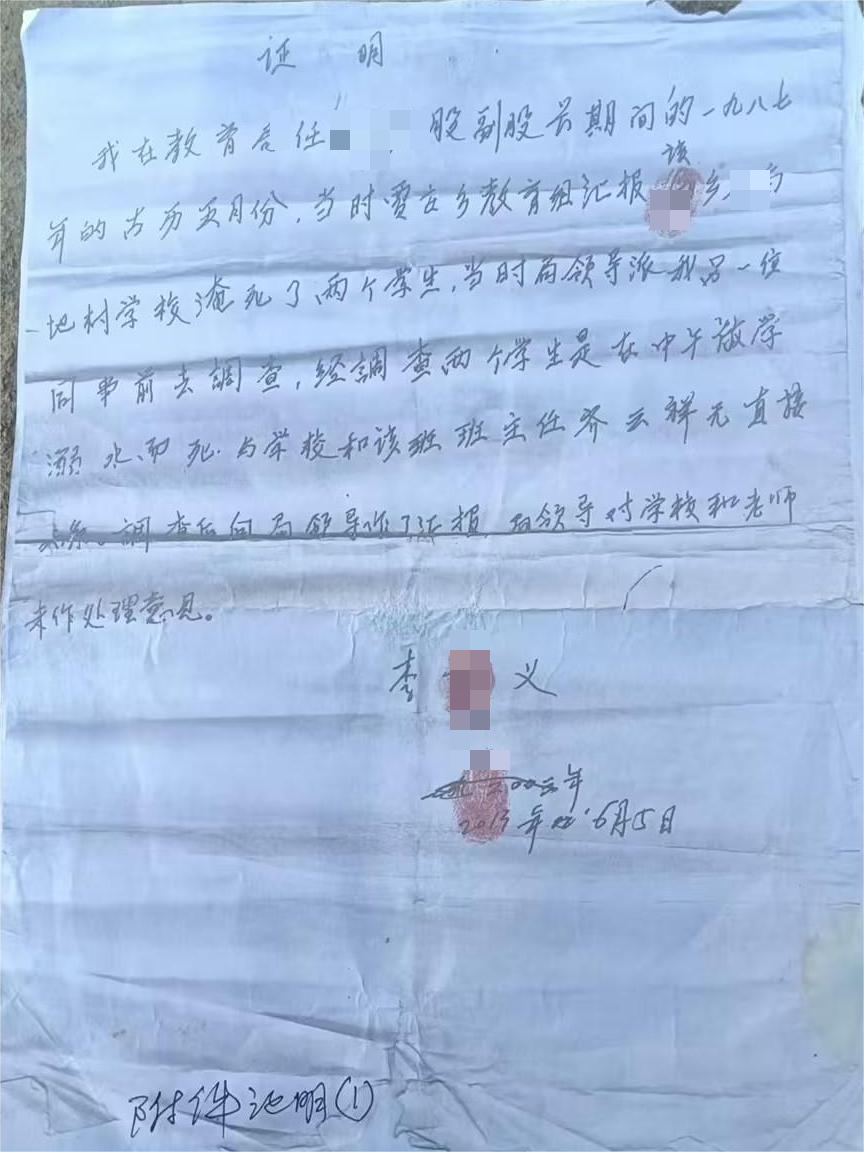 证 明
我在教育局任 股副股长期间的一九八七
该
年的古历五月份,当时贾 乡教育组汇报 乡
地村学校淹死了两个学生,当时局领导派我另一位
同事前去調查,经調查两个学生是在中午放学
溺水而死.与学校和该班班主任齐云祥无直接
关系。調查后向局领导作了汇报,局领导对学校和老师
未作处理意见。
李 义
年
2013年 6月5日
附件证明(1)